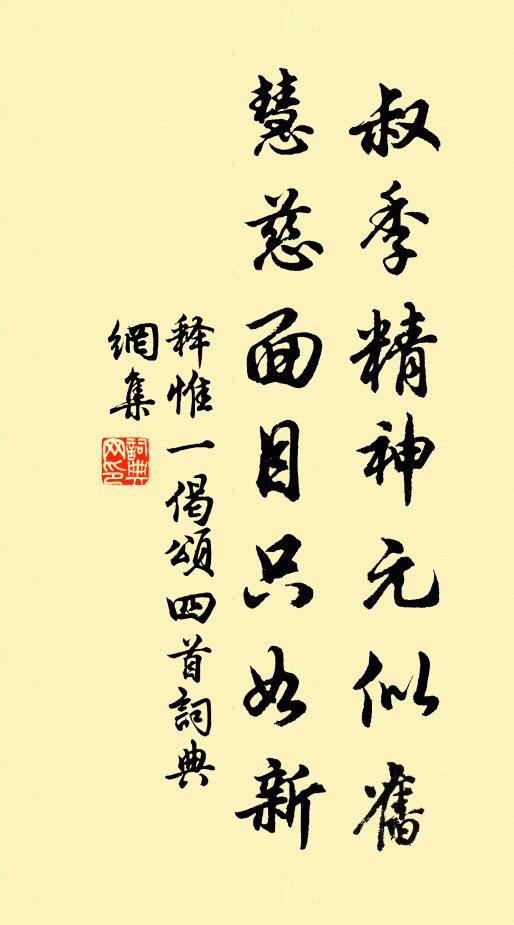 叔季精神元似舊
慧慈面目只如新
释惟一偈頌四首詞典
網集
詞典
网印